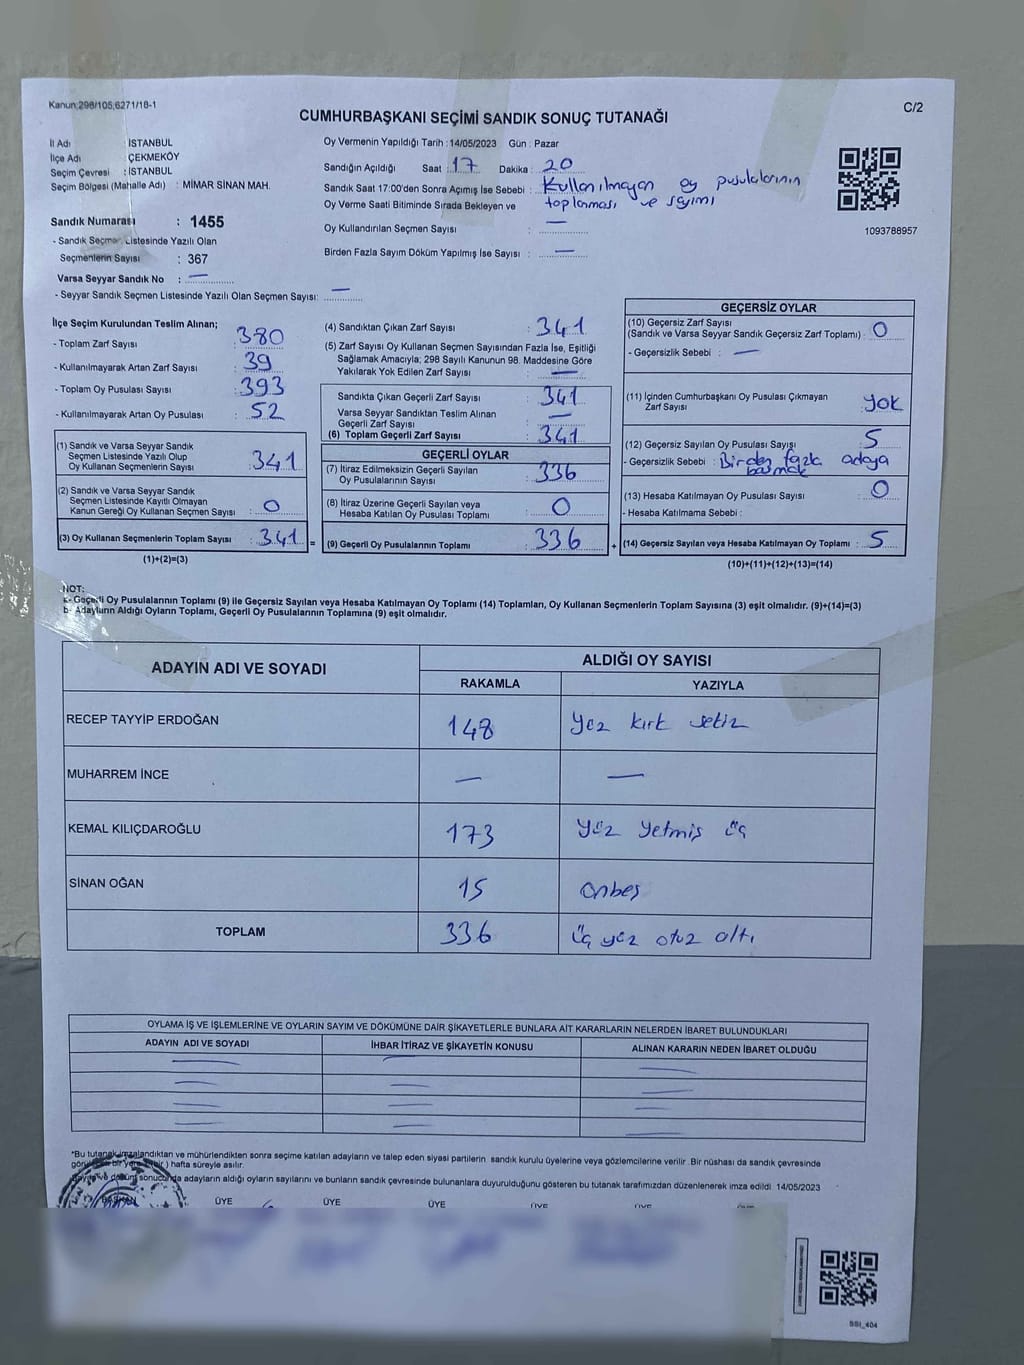 Kanun;298/105,6271/18-1
C/2
CUMHURBAŞKANI SEÇİMİ SANDIK SONUÇ TUTANAĞI
İl Adı : İSTANBUL
İlçe Adı : ÇEKMEKÖY
Seçim Çevresi : İSTANBUL
Seçim Bölgesi (Mahalle Adı) : MİMAR SİNAN MAH.
Sandık Numarası : 1455
- Sandık Seçmen Listesinde Yazılı Olan
Seçmenlerin Sayısı : 367
Varsa Seyyar Sandık No : —
- Seyyar Sandık Seçmen Listesinde Yazılı Olan Seçmen Sayısı: —
Oy Vermenin Yapıldığı Tarih : 14/05/2023 Gün : Pazar
Sandığın Açıldığı Saat : 17 Dakika : 20
Sandık Saat 17:00'den Sonra Açımış İse Sebebi : Kullanılmayan oy pusulalarının
Oy Verme Saati Bitiminde Sırada Bekleyen ve toplanması ve sayımı
Oy Kullandırılan Seçmen Sayısı : —
Birden Fazla Sayım Döküm Yapılmış İse Sayısı : —
1093788957
İlçe Seçim Kurulundan Teslim Alınan;
- Toplam Zarf Sayısı : 380
- Kullanılmayarak Artan Zarf Sayısı : 39
- Toplam Oy Pusulası Sayısı : 393
- Kullanılmayarak Artan Oy Pusulası : 52
(1) Sandık ve Varsa Seyyar Sandık
Seçmen Listesinde Yazılı Olup
Oy Kullanan Seçmenlerin Sayısı : 341
(2) Sandık ve Varsa Seyyar Sandık
Seçmen Listesinde Kayıtlı Olmayan
Kanun Gereği Oy Kullanan Seçmen Sayısı : 0
(3) Oy Kullanan Seçmenlerin Toplam Sayısı : 341 =
(1)+(2)=(3)
(4) Sandıktan Çıkan Zarf Sayısı : 341
(5) Zarf Sayısı Oy Kullanan Seçmen Sayısından Fazla İse, Eşitliği
Sağlamak Amacıyla; 298 Sayılı Kanunun 98. Maddesine Göre
Yakılarak Yok Edilen Zarf Sayısı : —
Sandıkta Çıkan Geçerli Zarf Sayısı : 341
Varsa Seyyar Sandıktan Teslim Alınan
Geçerli Zarf Sayısı : —
(6) Toplam Geçerli Zarf Sayısı : 341
GEÇERLİ OYLAR
(7) İtiraz Edilmeksizin Geçerli Sayılan
Oy Pusulalarının Sayısı : 336
(8) İtiraz Üzerine Geçerli Sayılan veya
Hesaba Katılan Oy Pusulası Toplamı : 0
(9) Geçerli Oy Pusulalarının Toplamı : 336 +
GEÇERSİZ OYLAR
(10) Geçersiz Zarf Sayısı
(Sandık ve Varsa Seyyar Sandık Geçersiz Zarf Toplamı) : 0
- Geçersizlik Sebebi : —
(11) İçinden Cumhurbaşkanı Oy Pusulası Çıkmayan
Zarf Sayısı : yok
(12) Geçersiz Sayılan Oy Pusulası Sayısı : 5
- Geçersizlik Sebebi : Birden fazla adaya
basmak
(13) Hesaba Katılmayan Oy Pusulası Sayısı : 0
- Hesaba Katılmama Sebebi :
(14) Geçersiz Sayılan veya Hesaba Katılmayan Oy Toplamı : 5
(10)+(11)+(12)+(13)=(14)
NOT:
a- Geçerli Oy Pusulalarının Toplamı (9) ile Geçersiz Sayılan veya Hesaba Katılmayan Oy Toplamı (14) Toplamları, Oy Kullanan Seçmenlerin Toplam Sayısına (3) eşit olmalıdır. (9)+(14)=(3)
b- Adayların Aldığı Oyların Toplamı, Geçerli Oy Pusulalarının Toplamına (9) eşit olmalıdır.
ADAYIN ADI VE SOYADI ALDIĞI OY SAYISI
RAKAMLA YAZIYLA
RECEP TAYYİP ERDOĞAN 148 Yüz kırk sekiz
MUHARREM İNCE — —
KEMAL KILIÇDAROĞLU 173 Yüz yetmiş üç
SİNAN OĞAN 15 Onbeş
TOPLAM 336 üç yüz otuz altı
OYLAMA İŞ VE İŞLEMLERİNE VE OYLARIN SAYIM VE DÖKÜMÜNE DAİR ŞİKAYETLERLE BUNLARA AİT KARARLARIN NELERDEN İBARET BULUNDUKLARI
ADAYIN ADI VE SOYADI İHBAR İTİRAZ VE ŞİKAYETİN KONUSU ALINAN KARARIN NEDEN İBARET OLDUĞU
*Bu tutanak imzalandıktan ve mühürlendikten sonra seçime katılan adayların ve talep eden siyasi partilerin sandık kurulu üyelerine veya gözlemcilerine verilir .Bir nüshası da sandık çevresinde
bir ) hafta süreyle asılır.
Sayım ve döküm sonucunda adayların aldığı oyların sayılarını ve bunların sandık çevresinde bulunanlara duyurulduğunu gösteren bu tutanak tarafımızdan düzenlenerek imza edildi. 14/05/2023
BAŞKAN ÜYE ÜYE ÜYE ÜYE ÜYE
SSI_404